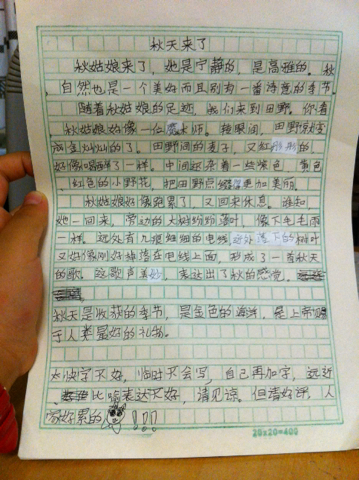 秋天来了
秋姑娘来了，她是宁静的，是高雅的。秋
自然也是一个美好而且别有一番诗意的季节
随着秋姑娘的足迹，我们来到田野。你看
秋姑娘好像一位魔术师。转眼间，田野就变
的了。田野间的麦子，又红彤彤的
好像喝醉了一样。中间还夹着一些紫色，黄色
红色的小野花，把田野点缀得更加美丽。
秋姑娘好像跑累了，又回来休息。谁知
她一回来，旁边的大树纷纷落叶，像下毛毛雨
一样。远处有几根细细的电线，这么落下的树叶
又好像刚好掉落在电线上面，形成了一首秋天
的歌。这歌声美妙，表达出了秋的感觉。
秋天是收获的季节，是金色的海洋，是上帝赐
于人类最好的礼物。
太快字不好，临时不会写，自己再加字，远近
比喻表达不好，请见谅。但请好评，人
家好累的！！！
20x20=400